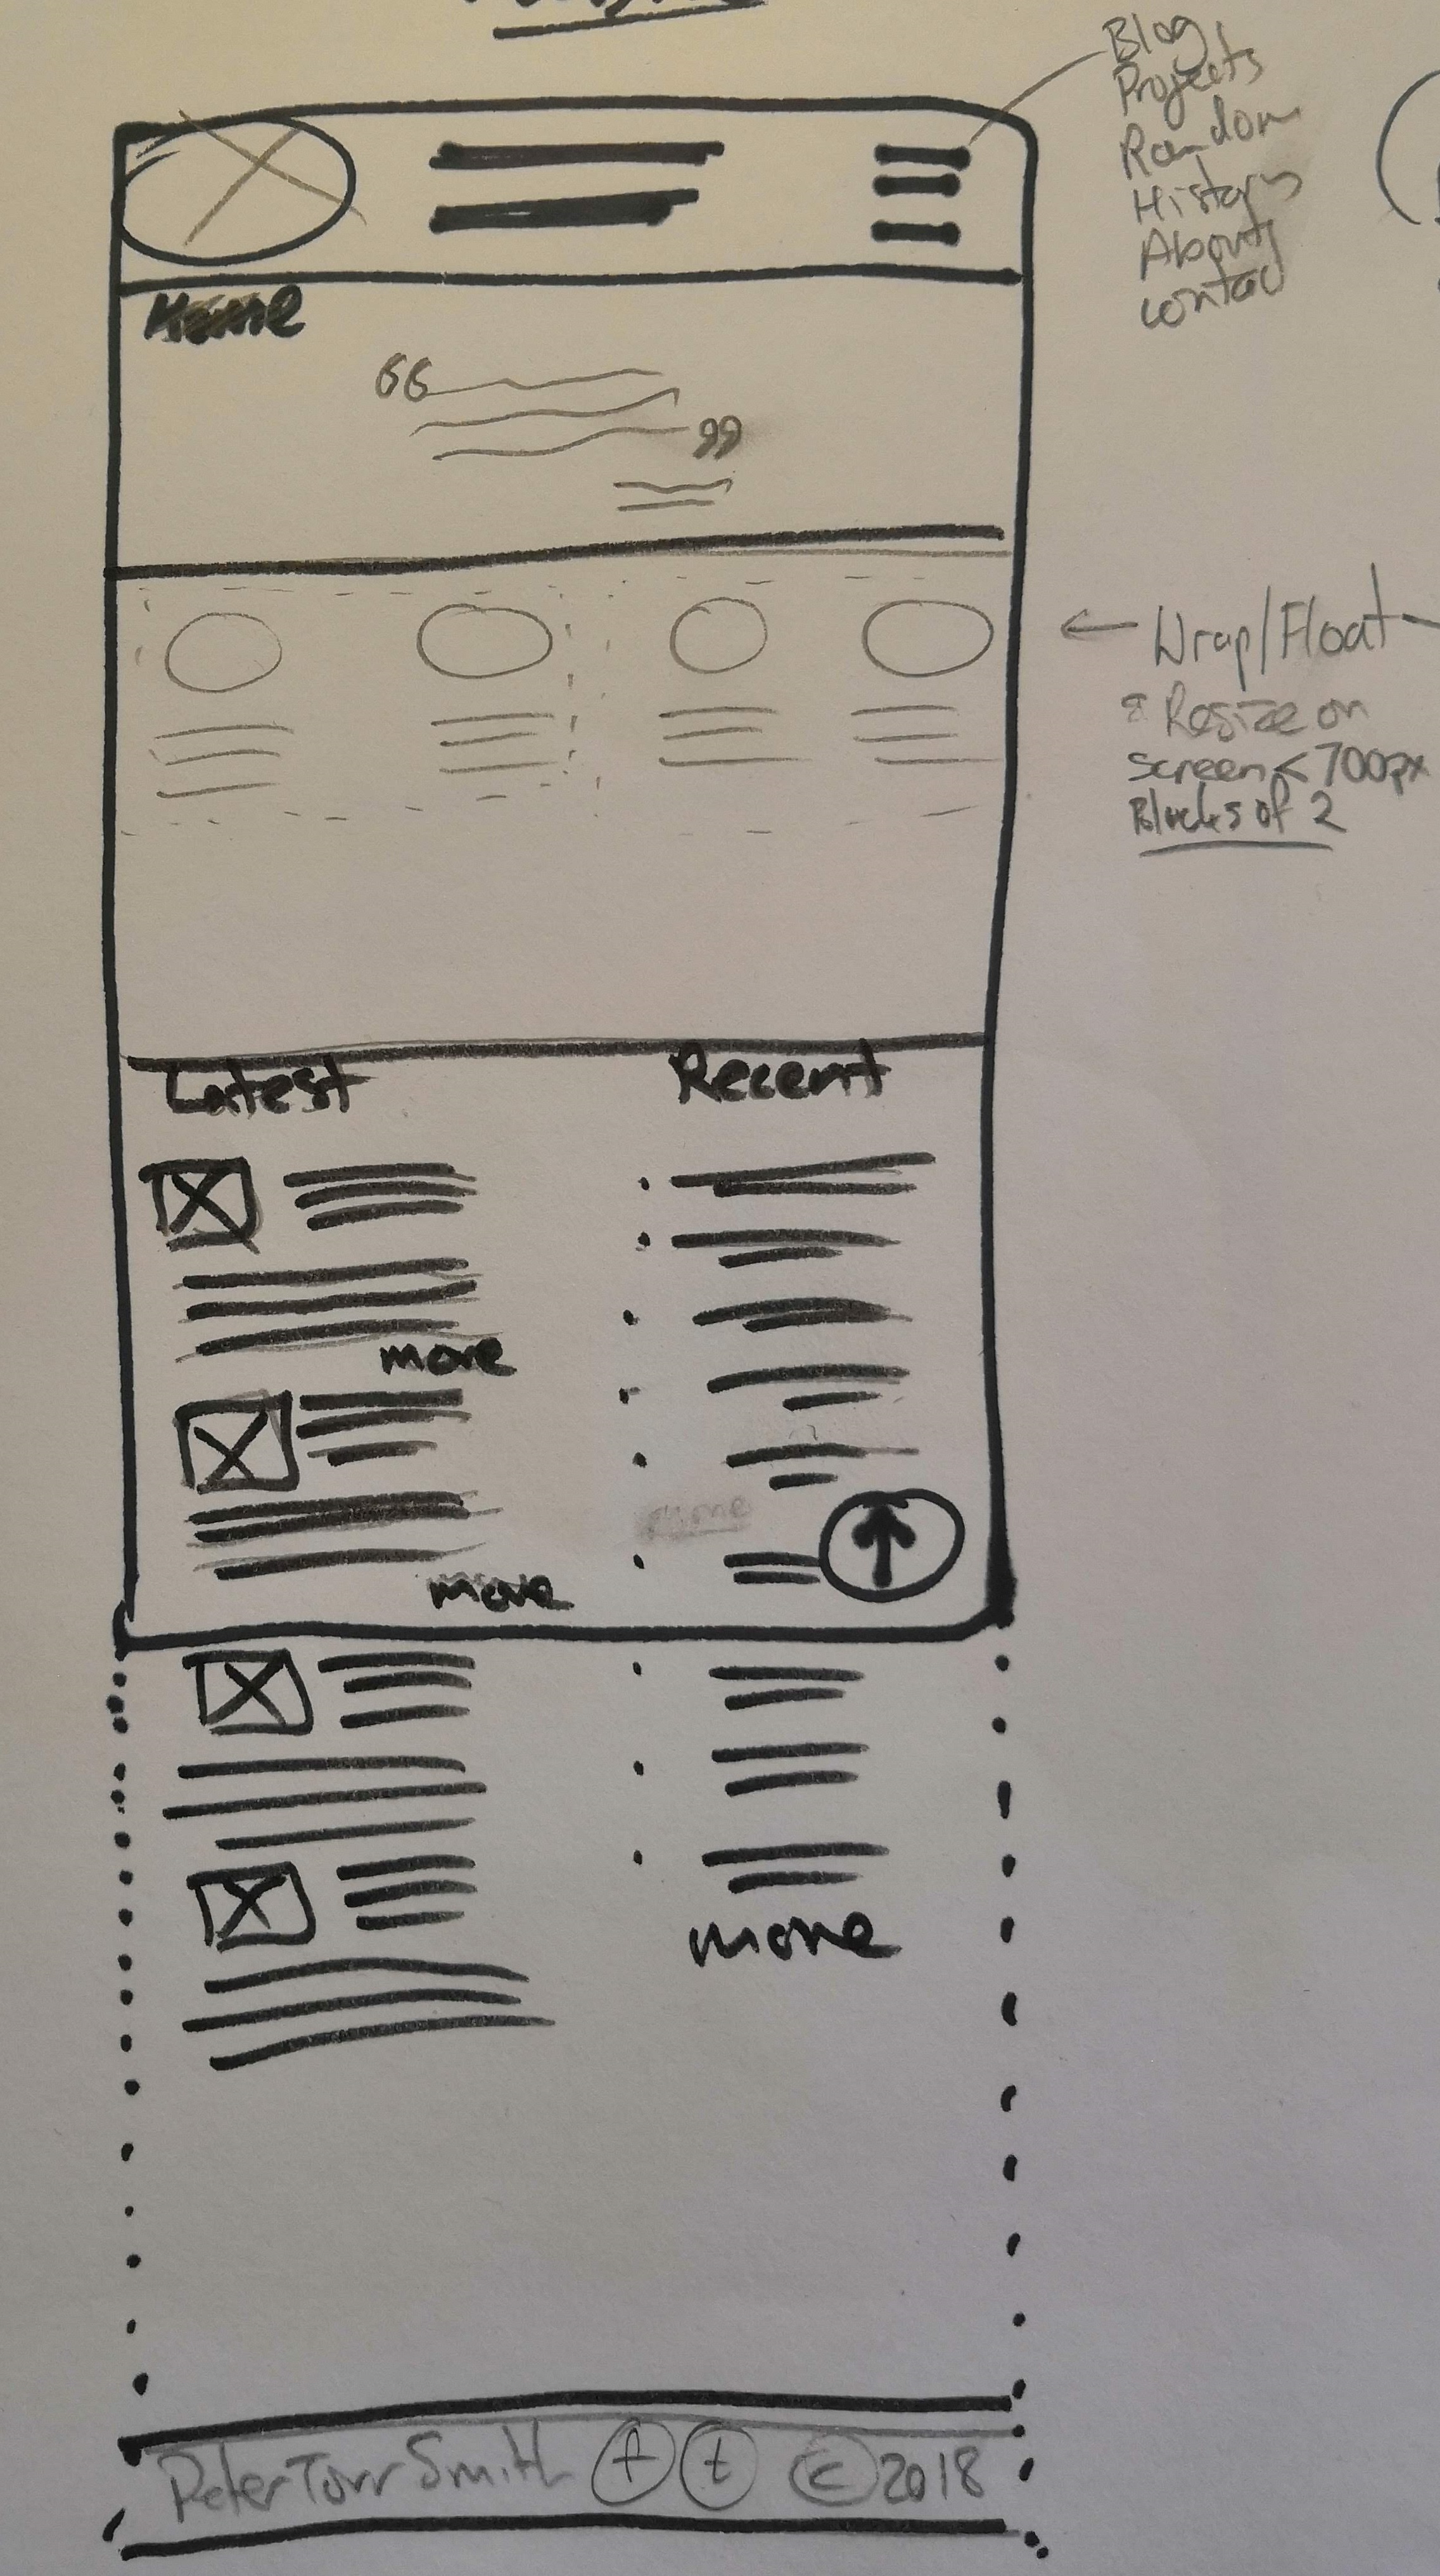 Blog
Projects
Random
History
About
contac
Home
66
99
← Wrap/Float
* Resize on
screen < 700px
Blocks of 2
Latest
Recent
more
more
more
Peter Torr Smith f t © 2018